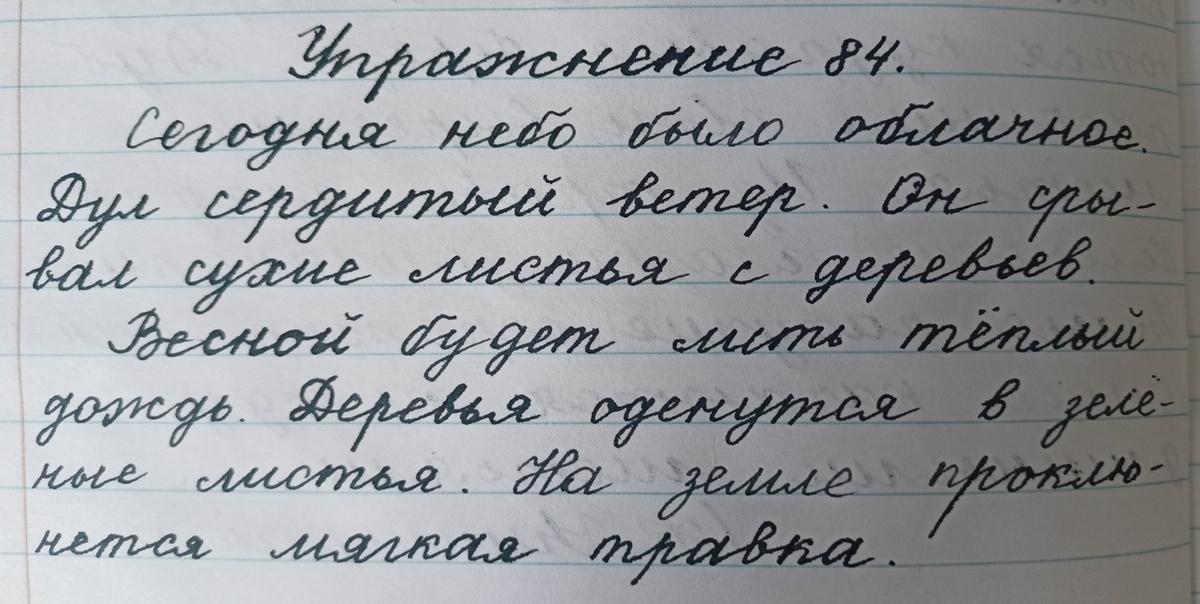 Упражнение 84.
Сегодня небо было облачное.
Дул сердитый ветер. Он сры-
вал сухие листья с деревьев.
Весной будет лить тёплый
дождь. Деревья оденутся в зелё-
ные листья. На земле проклю-
нется мягкая травка.